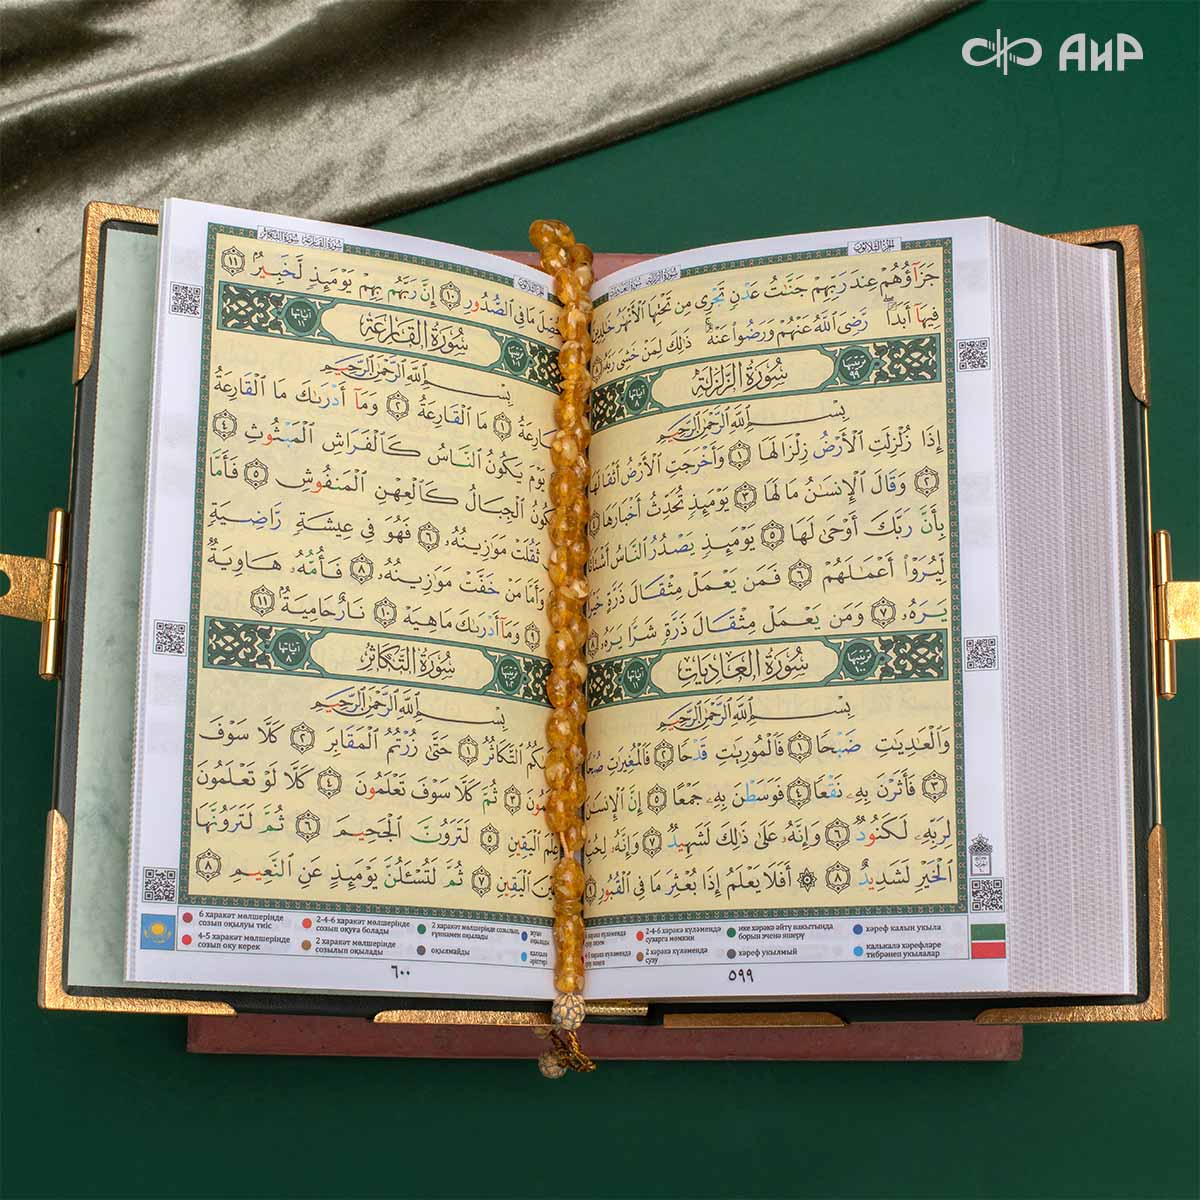 АиР
الجزء الثلاثون
جَزَآؤُهُمْ عِندَ رَبِّهِمْ جَنَّـٰتُ عَدْنٍ تَجْرِى مِن تَحْتِهَا ٱلْأَنْهَـٰرُ خَـٰلِدِينَ
فِيهَآ أَبَدًا ۖ رَّضِىَ ٱللَّهُ عَنْهُمْ وَرَضُوا۟ عَنْهُ ۚ ذَٰلِكَ لِمَنْ خَشِىَ رَبَّهُۥ ٨
ترتيبها ٩٩ سُورَةُ الزَّلْزَلَةِ آياتها ٨
بِسْمِ ٱللَّهِ ٱلرَّحْمَـٰنِ ٱلرَّحِيمِ
إِذَا زُلْزِلَتِ ٱلْأَرْضُ زِلْزَالَهَا ١ وَأَخْرَجَتِ ٱلْأَرْضُ أَثْقَالَهَا
٢ وَقَالَ ٱلْإِنسَـٰنُ مَا لَهَا ٣ يَوْمَئِذٍ تُحَدِّثُ أَخْبَارَهَا ٤
بِأَنَّ رَبَّكَ أَوْحَىٰ لَهَا ٥ يَوْمَئِذٍ يَصْدُرُ ٱلنَّاسُ أَشْتَاتًا
لِّيُرَوْا۟ أَعْمَـٰلَهُمْ ٦ فَمَن يَعْمَلْ مِثْقَالَ ذَرَّةٍ خَيْرًا
يَرَهُۥ ٧ وَمَن يَعْمَلْ مِثْقَالَ ذَرَّةٍ شَرًّا يَرَهُۥ ٨
ترتيبها ١٠٠ سُورَةُ العَادِيَاتِ آياتها ١١
بِسْمِ ٱللَّهِ ٱلرَّحْمَـٰنِ ٱلرَّحِيمِ
وَٱلْعَـٰدِيَـٰتِ ضَبْحًا ١ فَٱلْمُورِيَـٰتِ قَدْحًا ٢ فَٱلْمُغِيرَٰتِ صُبْحًا
٣ فَأَثَرْنَ بِهِۦ نَقْعًا ٤ فَوَسَطْنَ بِهِۦ جَمْعًا ٥ إِنَّ ٱلْإِنسَـٰنَ
لِرَبِّهِۦ لَكَنُودٌ ٦ وَإِنَّهُۥ عَلَىٰ ذَٰلِكَ لَشَهِيدٌ ٧ وَإِنَّهُۥ لِحُبِّ
ٱلْخَيْرِ لَشَدِيدٌ ٨ ۞ أَفَلَا يَعْلَمُ إِذَا بُعْثِرَ مَا فِى ٱلْقُبُورِ ٩
2-4-6 хәрәкә күләмендә сузарга мөмкин
ике хәрәкә әйтү вакытында борын эченә яшерү
хәреф калын укыла
2 хәрәкә күләмендә сузу
хәреф укылмый
калькалә хәрефләре тибрәнеп укылалар
٥٩٩
سورة القارعة سورة التكاثر
حُصِّلَ مَا فِى ٱلصُّدُورِ ١٠ إِنَّ رَبَّهُم بِهِمْ يَوْمَئِذٍ لَّخَبِيرٌۢ ١١
ترتيبها ١٠١ سُورَةُ القَارِعَةِ آياتها ١١
بِسْمِ ٱللَّهِ ٱلرَّحْمَـٰنِ ٱلرَّحِيمِ
ٱلْقَارِعَةُ ١ مَا ٱلْقَارِعَةُ ٢ وَمَآ أَدْرَىٰكَ مَا ٱلْقَارِعَةُ
يَوْمَ يَكُونُ ٱلنَّاسُ كَٱلْفَرَاشِ ٱلْمَبْثُوثِ ٤
وَتَكُونُ ٱلْجِبَالُ كَٱلْعِهْنِ ٱلْمَنفُوشِ ٥ فَأَمَّا
ثَقُلَتْ مَوَٰزِينُهُۥ ٦ فَهُوَ فِى عِيشَةٍ رَّاضِيَةٍ
وَأَمَّا مَنْ خَفَّتْ مَوَٰزِينُهُۥ ٨ فَأُمُّهُۥ هَاوِيَةٌ
٩ وَمَآ أَدْرَىٰكَ مَا هِيَهْ ١٠ نَارٌ حَامِيَةٌۢ ١١
ترتيبها ١٠٢ سُورَةُ التَّكَاثُرِ آياتها ٨
بِسْمِ ٱللَّهِ ٱلرَّحْمَـٰنِ ٱلرَّحِيمِ
أَلْهَىٰكُمُ ٱلتَّكَاثُرُ ١ حَتَّىٰ زُرْتُمُ ٱلْمَقَابِرَ ٢ كَلَّا سَوْفَ
تَعْلَمُونَ ٣ ثُمَّ كَلَّا سَوْفَ تَعْلَمُونَ ٤ كَلَّا لَوْ تَعْلَمُونَ
عِلْمَ ٱلْيَقِينِ ٥ لَتَرَوُنَّ ٱلْجَحِيمَ ٦ ثُمَّ لَتَرَوُنَّهَا
عَيْنَ ٱلْيَقِينِ ٧ ثُمَّ لَتُسْـَٔلُنَّ يَوْمَئِذٍ عَنِ ٱلنَّعِيمِ ٨
6 харакәт мөлшерінде созып оқылуы тиіс
2-4-6 харакәт мөлшерінде созып оқуға болады
2 харакәт мөлшерінде созылып,
4-5 харакәт мөлшерінде созып оқу керек
2 харакәт мөлшерінде созылып оқылады
оқылмайды
٦٠٠